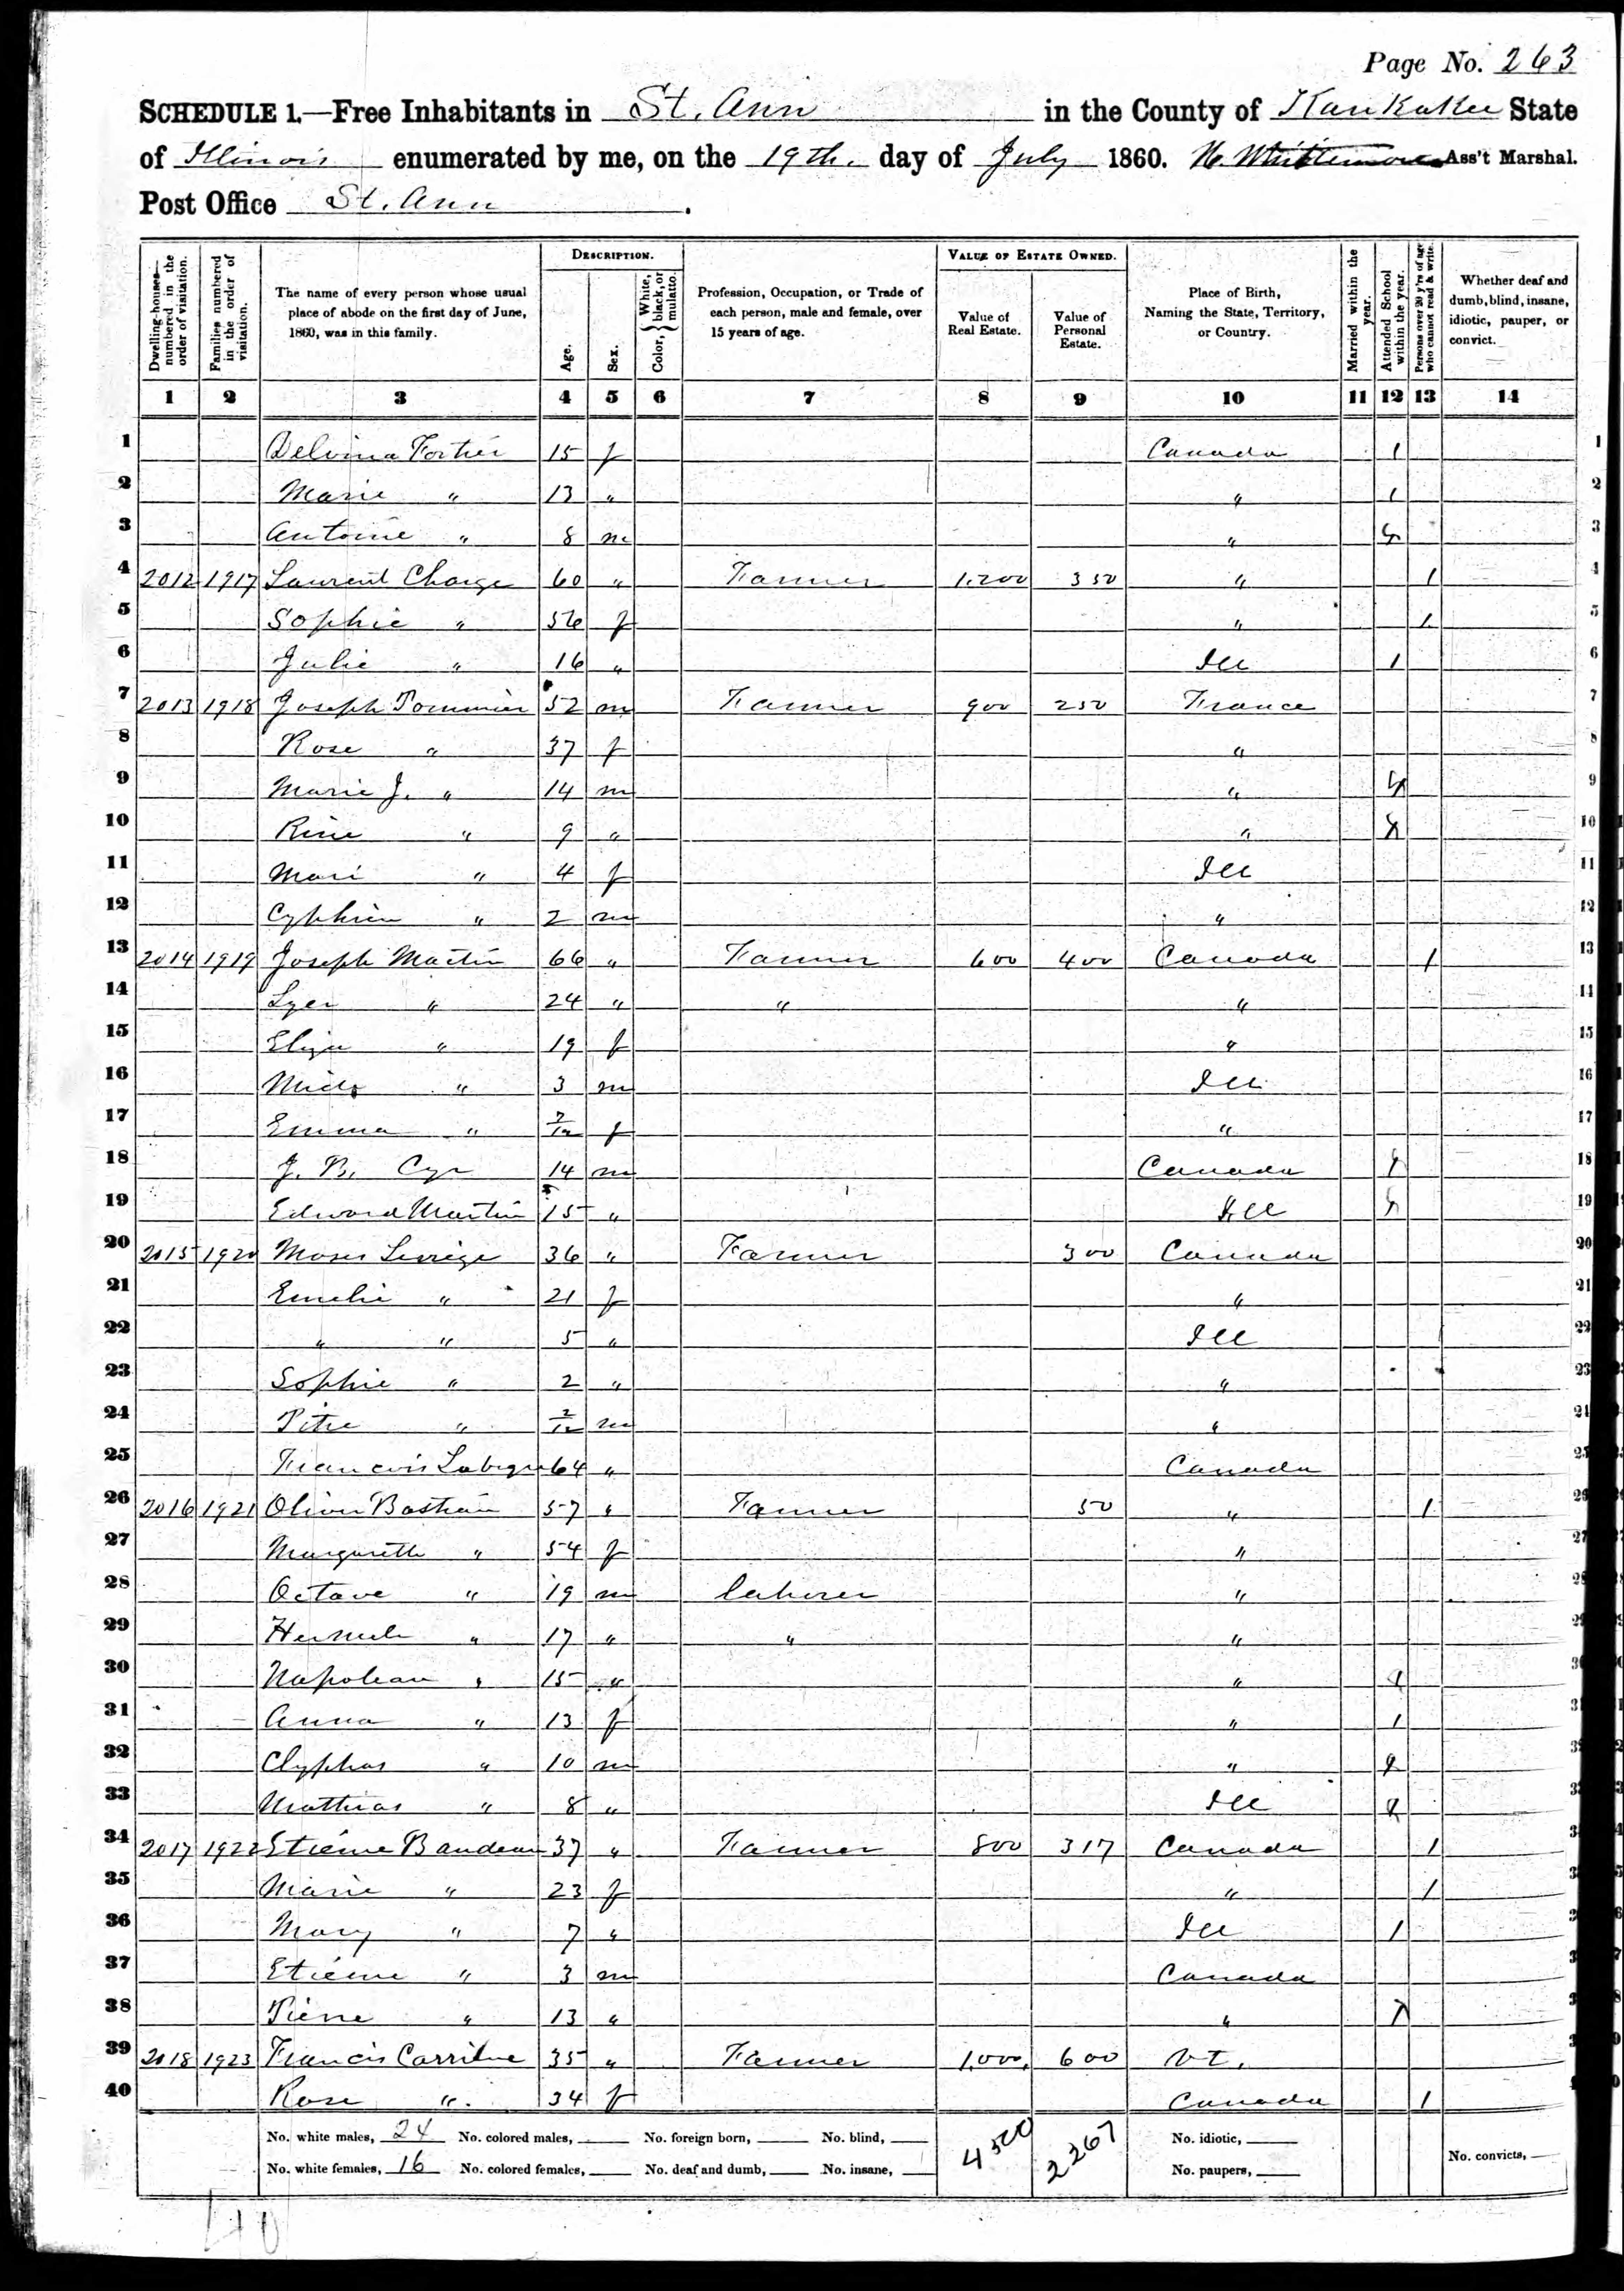 Page No. 263
SCHEDULE 1.—Free Inhabitants in St. Ann in the County of Kankakee State
of Illinois enumerated by me, on the 19th. day of July 1860. Ass't Marshal.
Post Office St. Ann.
Dwelling-houses—numbered in the order of visitation. Families numbered in the order of visitation. The name of every person whose usual place of abode on the first day of June, 1860, was in this family. DESCRIPTION. Age. Sex. Color, { White, black, or mulatto. Profession, Occupation, or Trade of each person, male and female, over 15 years of age. VALUE OF ESTATE OWNED. Value of Real Estate. Value of Personal Estate. Place of Birth, Naming the State, Territory, or Country. Married within the year. Attended School within the year. Persons over 20 y'rs of age who cannot read & write. Whether deaf and dumb, blind, insane, idiotic, pauper, or convict.
1 2 3 4 5 6 7 8 9 10 11 12 13 14
1 Delvina Fortier 15 f Canada 1 1
2 Marie " 13 " " 1 2
3 Antoine " 8 m " 3
4 2012 1917 Laurent Charge 60 " Farmer 1,200 350 " 1 4
5 Sophie " 56 f " 1 5
6 Julie " 16 " Ill 1 6
7 2013 1918 Joseph Pommier 52 m Farmer 900 250 France 7
8 Rose " 37 f " 8
9 Marie J. " 14 m " 9
10 Rine " 9 " " 10
11 Mari " 4 f Ill 11
12 Cyphrien " 2 m " 12
13 2014 1919 Joseph Martin 66 " Farmer 600 400 Canada 1 13
14 " 24 " " " 14
15 Eliza " 19 f " 15
16 " 3 m Ill 16
17 Emma " f " 17
18 J. B. Cyr 14 m Canada 18
19 Edward Martin 15 " Ill 19
20 2015 1920 Moses 36 " Farmer 300 Canada 20
21 Emelie " 21 f " 21
22 " " 5 " Ill 22
23 Sophie " 2 " " 23
24 Pitre " 2/12 m " 24
25 Francois 64 " Canada 25
26 2016 1921 Oliver Bastian 57 " Farmer 50 " 1 26
27 Margareth " 54 f " 27
28 Octave " 19 m laborer " 28
29 " 17 " " " 29
30 Napolean " 15 " " 30
31 Anna " 13 f " 1 31
32 Clyphas " 10 m " 32
33 Mathias " 8 " Ill 33
34 2017 1922 Etienne Baudeau 37 " Farmer 800 317 Canada 1
35 Marie " 23 f " 1
36 Mary " 7 " Ill 1
37 Etienne " 3 m Canada
38 Pierre " 13 " "
39 2018 1923 Francis 35 " Farmer 1,000, 600 Vt.
40 Rose " 34 f Canada 1
No. white males, 24 No. colored males, No. foreign born, No. blind, 4500 2267 No. idiotic,
No. white females, 16 No. colored females, No. deaf and dumb, No. insane, No. paupers, No. convicts,
40